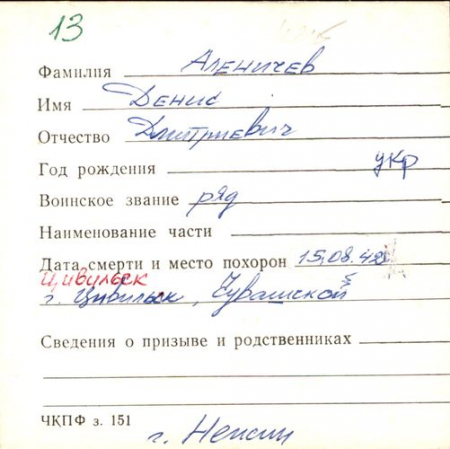 13
Фамилия Аленичев
Имя Денис
Отчество Дмитриевич
Год рождения укр
Воинское звание ряд
Наименование части
Дата смерти и место похорон 15.08.42
Цивильск
г. Цивильск, Чувашской
Сведения о призыве и родственниках
ЧКПФ з. 151
г. Нежин